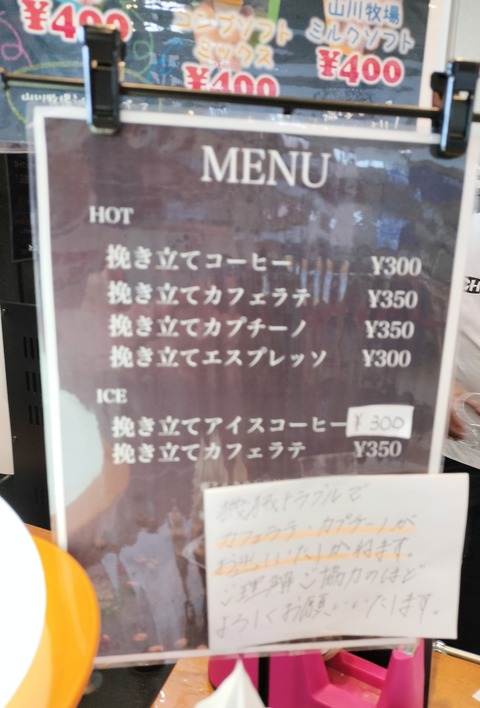 ¥400
コンブソフト
ミックス
¥400
山川牧場
ミルクソフト
¥400
MENU
HOT
挽き立てコーヒー ¥300
挽き立てカフェラテ ¥350
挽き立てカプチーノ ¥350
挽き立てエスプレッソ ¥300
ICE
挽き立てアイスコーヒー ¥300
挽き立てカフェラテ ¥350
機械トラブルで
カフェラテ・カプチーノが
お出しいたしかねます。
ご理解ご協力のほど
よろしくお願いいたします。